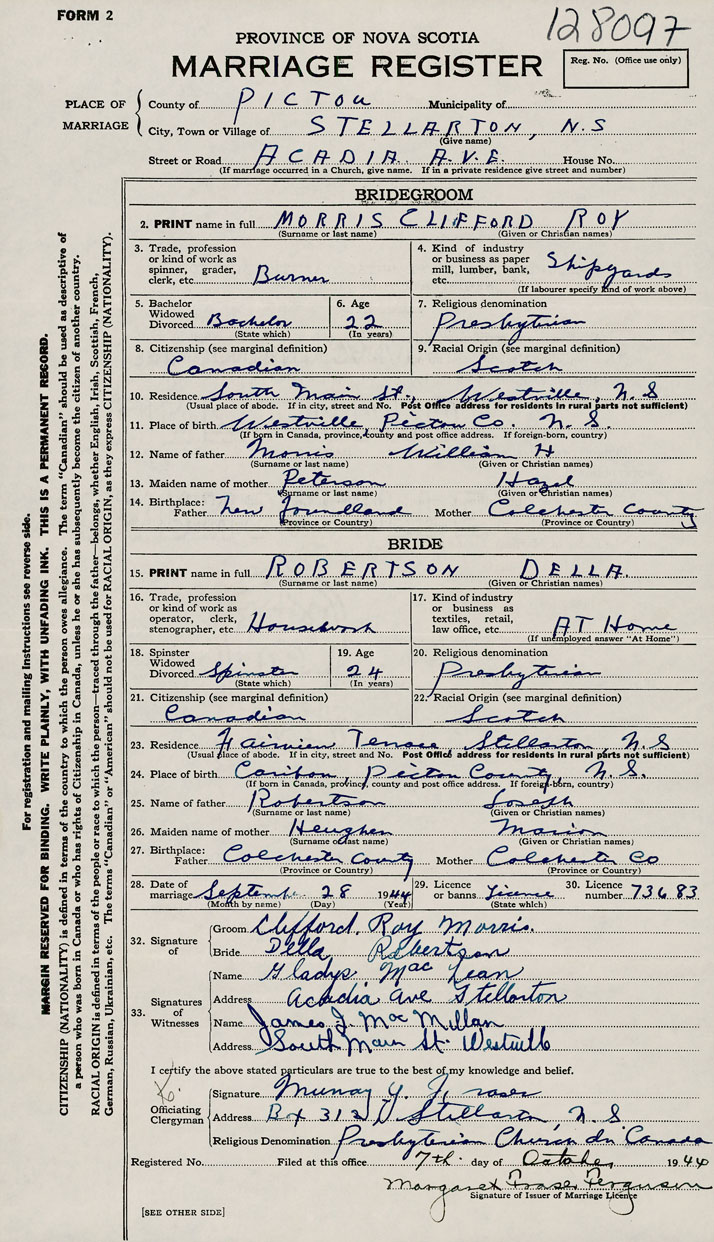 FORM 2
128097
PROVINCE OF NOVA SCOTIA
MARRIAGE REGISTER
Reg. No. (Office use only)
PLACE OF MARRIAGE
County of PICTOU Municipality of
City, Town or Village of STELLARTON, N.S
(Give name)
Street or Road ACADIA AVE. House No.
(If marriage occurred in a Church, give name. If in a private residence give street and number)
BRIDEGROOM
2. PRINT name in full MORRIS CLIFFORD ROY
(Surname or last name) (Given or Christian names)
3. Trade, profession or kind of work as spinner, grader, clerk, etc. Burner
4. Kind of industry or business as paper mill, lumber, bank, etc. Shipyards
(If labourer specify kind of work above)
5. Bachelor Widowed Divorced Bachelor
(State which)
6. Age 22
(In years)
7. Religious denomination
Presbyterian
8. Citizenship (see marginal definition)
Canadian
9. Racial Origin (see marginal definition)
Scotch
10. Residence South Main St., Westville, N.S
(Usual place of abode. If in city, street and No. Post Office address for residents in rural parts not sufficient)
11. Place of birth Westville, Pictou Co. N.S.
(If born in Canada, province, county and post office address. If foreign-born, country)
12. Name of father Morris William H
(Surname or last name) (Given or Christian names)
13. Maiden name of mother Peterson Hazel
(Surname or last name) (Given or Christian names)
14. Birthplace: Father New Foundland Mother Colchester County
(Province or Country) (Province or Country)
BRIDE
15. PRINT name in full ROBERTSON DELLA
(Surname or last name) (Given or Christian names)
16. Trade, profession or kind of work as operator, clerk, stenographer, etc. Housework
17. Kind of industry or business as textiles, retail, law office, etc. AT Home
(If unemployed answer "At Home")
18. Spinster Widowed Divorced Spinster
(State which)
19. Age 24
(In years)
20. Religious denomination
Presbyterian
21. Citizenship (see marginal definition)
Canadian
22. Racial Origin (see marginal definition)
Scotch
23. Residence Fairview Terrace Stellarton, N.S
(Usual place of abode. If in city, street and No. Post Office address for residents in rural parts not sufficient)
24. Place of birth Caribou, Pictou County, N.S.
(If born in Canada, province, county and post office address. If foreign-born, country)
25. Name of father Robertson Joseph
(Surname or last name) (Given or Christian names)
26. Maiden name of mother Heughen Marion
(Surname or last name) (Given or Christian names)
27. Birthplace: Father Colchester County Mother Colchester Co
(Province or Country) (Province or Country)
28. Date of marriage September 28 1944
(Month by name) (Day) (Year)
29. Licence or banns Licence
(State which)
30. Licence number 73683
32. Signature of
Groom Clifford Roy Morris.
Bride Della Robertson
33. Signatures of Witnesses
Name Gladys MacLean
Address Acadia Ave Stellarton
Name James J. MacMillan
Address South Main St. Westville
I certify the above stated particulars are true to the best of my knowledge and belief.
Officiating Clergyman
Signature Murray Y. Fraser
Address Bx 312 Stellarton, N.S
Religious Denomination Presbyterian Church In Canada
Registered No. Filed at this office 7th. day of October 1944
Margaret Fraser Ferguson
Signature of Issuer of Marriage Licence
[SEE OTHER SIDE]
For registration and mailing instructions see reverse side.
MARGIN RESERVED FOR BINDING. WRITE PLAINLY, WITH UNFADING INK. THIS IS A PERMANENT RECORD.
CITIZENSHIP (NATIONALITY) is defined in terms of the country to which the person owes allegiance. The term "Canadian" should be used as descriptive of
a person who was born in Canada or who has rights of Citizenship in Canada, unless he or she has subsequently become the citizen of another country.
RACIAL ORIGIN is defined in terms of the people or race to which the person—traced through the father—belongs, whether English, Irish, Scottish, French,
German, Russian, Ukrainian, etc. The terms "Canadian" or "American" should not be used for RACIAL ORIGIN, as they express CITIZENSHIP (NATIONALITY).